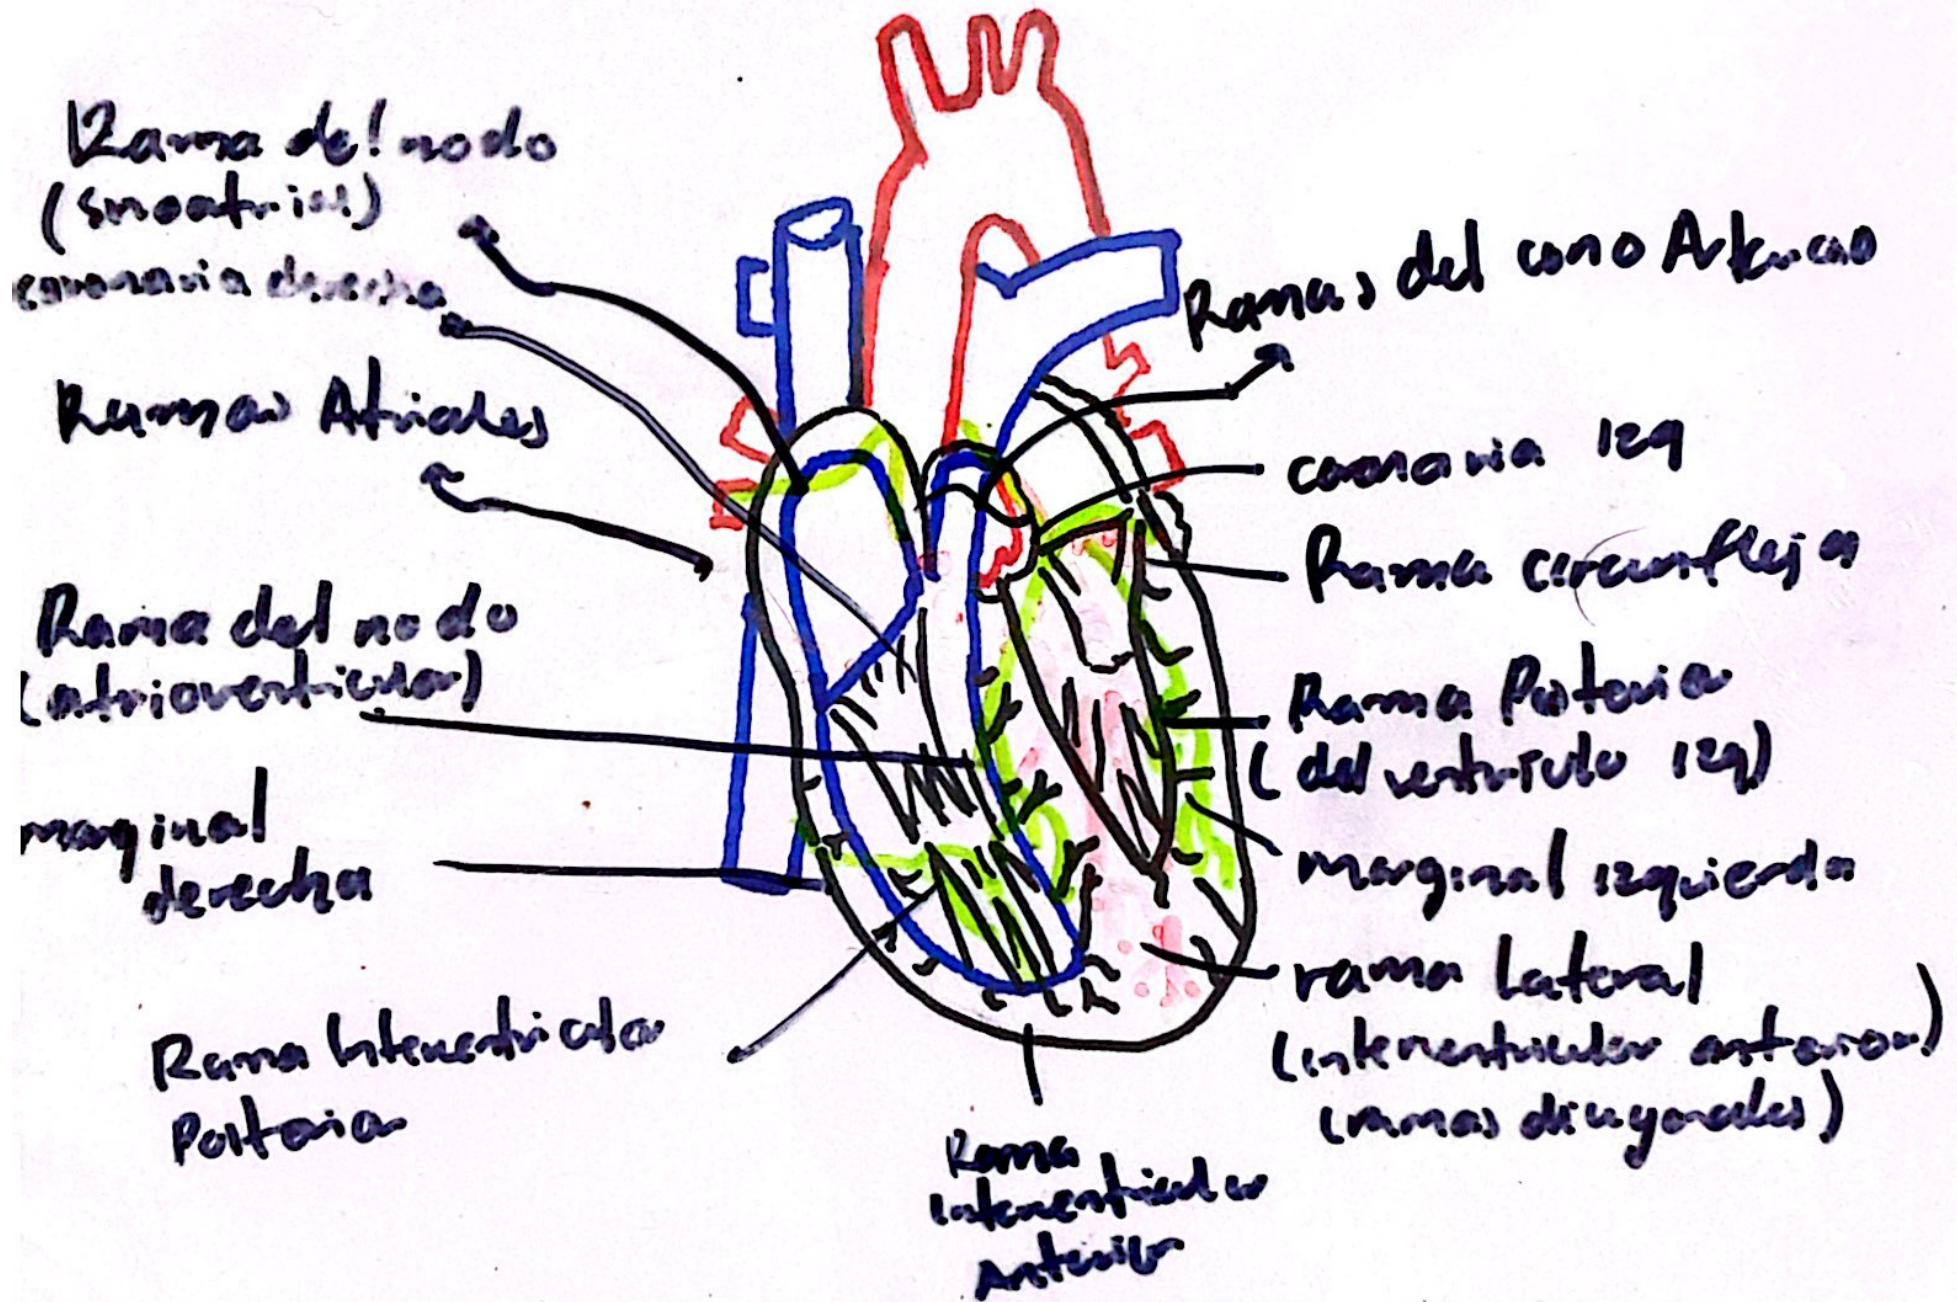 Rama del nodo
(sinoatrial)
coronaria derecha
Ramas Atriales
Rama del nodo
(atrioventricular)
marginal
derecha
Rama Interventricular
Posterior
Rama
Interventricular
Anterior
Ramas del cono Arterioso
coronaria izq
Rama circunfleja
Rama Posterior
(del ventriculo izq)
marginal izquierda
rama Lateral
(interventricular anterior)
(ramas diagonales)